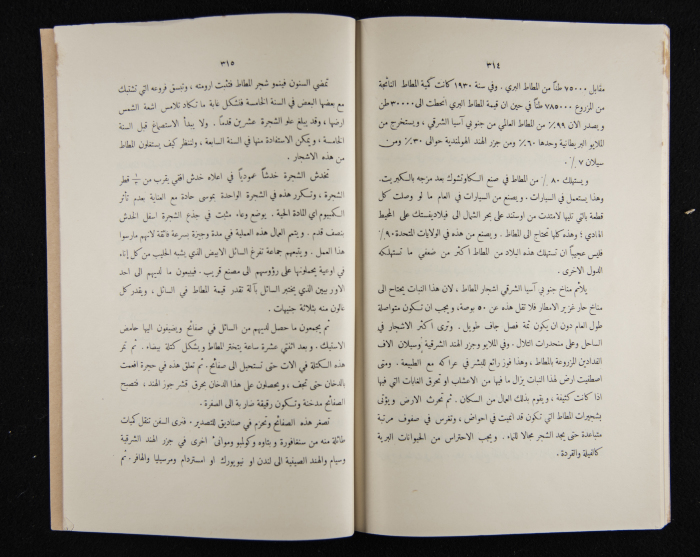 ٣١٤
مقابل ٧٥٠٠٠ طناً من المطاط البري . وفي سنة ١٩٣٠ كانت كمية المطاط الناتجة
من المزروع ٧٨٥٠٠٠ طناً في حين ان قيمة المطاط البري انحطت الى ٣٠٠٠٠ طن
ويصدر الان ٩٩٪ من المطاط العالمي من جنوبي آسيا الشرقي ، ويستخرج من
الملايو البريطانية وحدها ٦٠٪ ومن جزر الهند الهولمندية حوالى ٣٠٪ ومن
سيلان ٧٪ .
ويستهلك ٨٠٪ من المطاط في صنع الكاوتشوك بعد مزجه بالكبريت.
وهذا يستعمل في السيارات . ويصنع من السيارات في العام ما لو وصلت كل
قطعة بالتي تليها لامتدت من اوستند على بحر الشمال الى فيلاديفستك على المحيط
الهادي ؛ وهذه كلها تحتاج الى المطاط . ويصنع من هذه في الولايات المتحدة ٩٠٪
فليس عجيباً ان تستهلك هذه البلاد من المطاط اكثر من ضعفي ما تستهلكه
الدول الاخرى .
يلائم مناخ جنوبي آسيا الشرقي اشجار المطاط ، لان هذا النبات يحتاج الى
مناخ حار غزير الامطار فلا تقل هذه عن ٥٠ بوصة، ويجب ان تكون متواصلة
طول العام دون ان يكون ثمة فصل جاف طويل . وترى اكثر الاشجار في
الساحل وعلى منحدرات التلال . وفي الملايو وجزر الهند الشرقية وسيلان الاف
الفدادين المزروعة بالمطاط ، وهذا فوز رائع للبشر في عراكه مع الطبيعة . ومتى
اصطفيت ارض لهذا النبات يزال ما فيها من الاعشاب او تحرق الغابات التي فيها
اذا كانت كثيفة ، ويقوم بذلك العمال من السكان . ثم تحرث الارض ويؤتى
بشجيرات المطاط التي تكون قد انميت في احواض ، وتغرس في صفوف مرتبة
متباعدة حتى يجد الشجر مجالا للنماء . ويجب الاحتراس من الحيوانات البرية
كالفيلة والقردة .
٣١٥
تمضي السنون فينمو شجر المطاط فتثبت ارومته ، وتبسق فروعه التي تشتبك
مع بعضها البعض في السنة الخامسة فتشكل غابة ما تكاد تلامس اشعة الشمس
ارضها ، وقد يبلغ علو الشجرة عشرين قدماً . ولا يبدأ الاستصماغ قبل السنة
الخامسة ، ويمكن الاستفادة منها في السنة السابعة ، ولننظر كيف يستغلون المطاط
من هذه الاشجار .
تخدش الشجرة خدشاً عمودياً في اعلاه خدش افقي يقرب من قطر
الشجرة ، وتكرر هذه في الشجرة الواحدة بموسى حادة مع العناية بعدم تأثر
الكمبيوم اي المادة الحية . يوضع وعاء مثبت في جذع الشجرة اسفل الخدش
بنصف قدم . ويتمم العمال هذه العملية في مدة وجيزة بسرعة فائقة لانهم مارسوا
هذا العمل . ويتبعهم جماعة تفرغ السائل الابيض الذي يشبه الحليب من كل إناء
في اوعية يحملونها على رؤوسهم الى مصنع قريب . فيبيعون ما لديهم الى احد
الاوربيين الذي يختبر السائل بآلة تقدر قيمة المطاط في السائل ، ويقدر كل
غالون منه بثلاثة جنيهات .
ثم يجمعون ما حصل لديهم من السائل في صفائح ويضيفون اليها حامض
الاستيك . وبعد اثنتي عشرة ساعة يتخثر المطاط ويشكل كتلة بيضاء . ثم تمر
هذه الكتلة في الات حتى تستحيل الى صفائح . ثم تعلق هذه في حجرة افعمت
بالدخان حتى تجف ، ويحصلون على هذا الدخان بحرق قشر جوز الهند ، فتصبح
الصفائح مدخنة وتكون رقيقة ضاربة الى الصفرة .
تصغر هذه الصفائح وتحزم في صناديق للتصدير . فترى السفن تنقل كميات
طائلة منه من سنغافورة وبتاوه وكولمبو وموانىء اخرى في جزر الهند الشرقية
وسيام والهند الصينية الى لندن او نيويورك او امستردام ومرسيليا والهافر . ثم